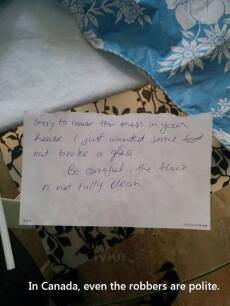 Sorry to cause the mess in your
house. I just wanted some food
but broke a glass
Be careful, the floor
is not fully clean
In Canada, even the robbers are polite.